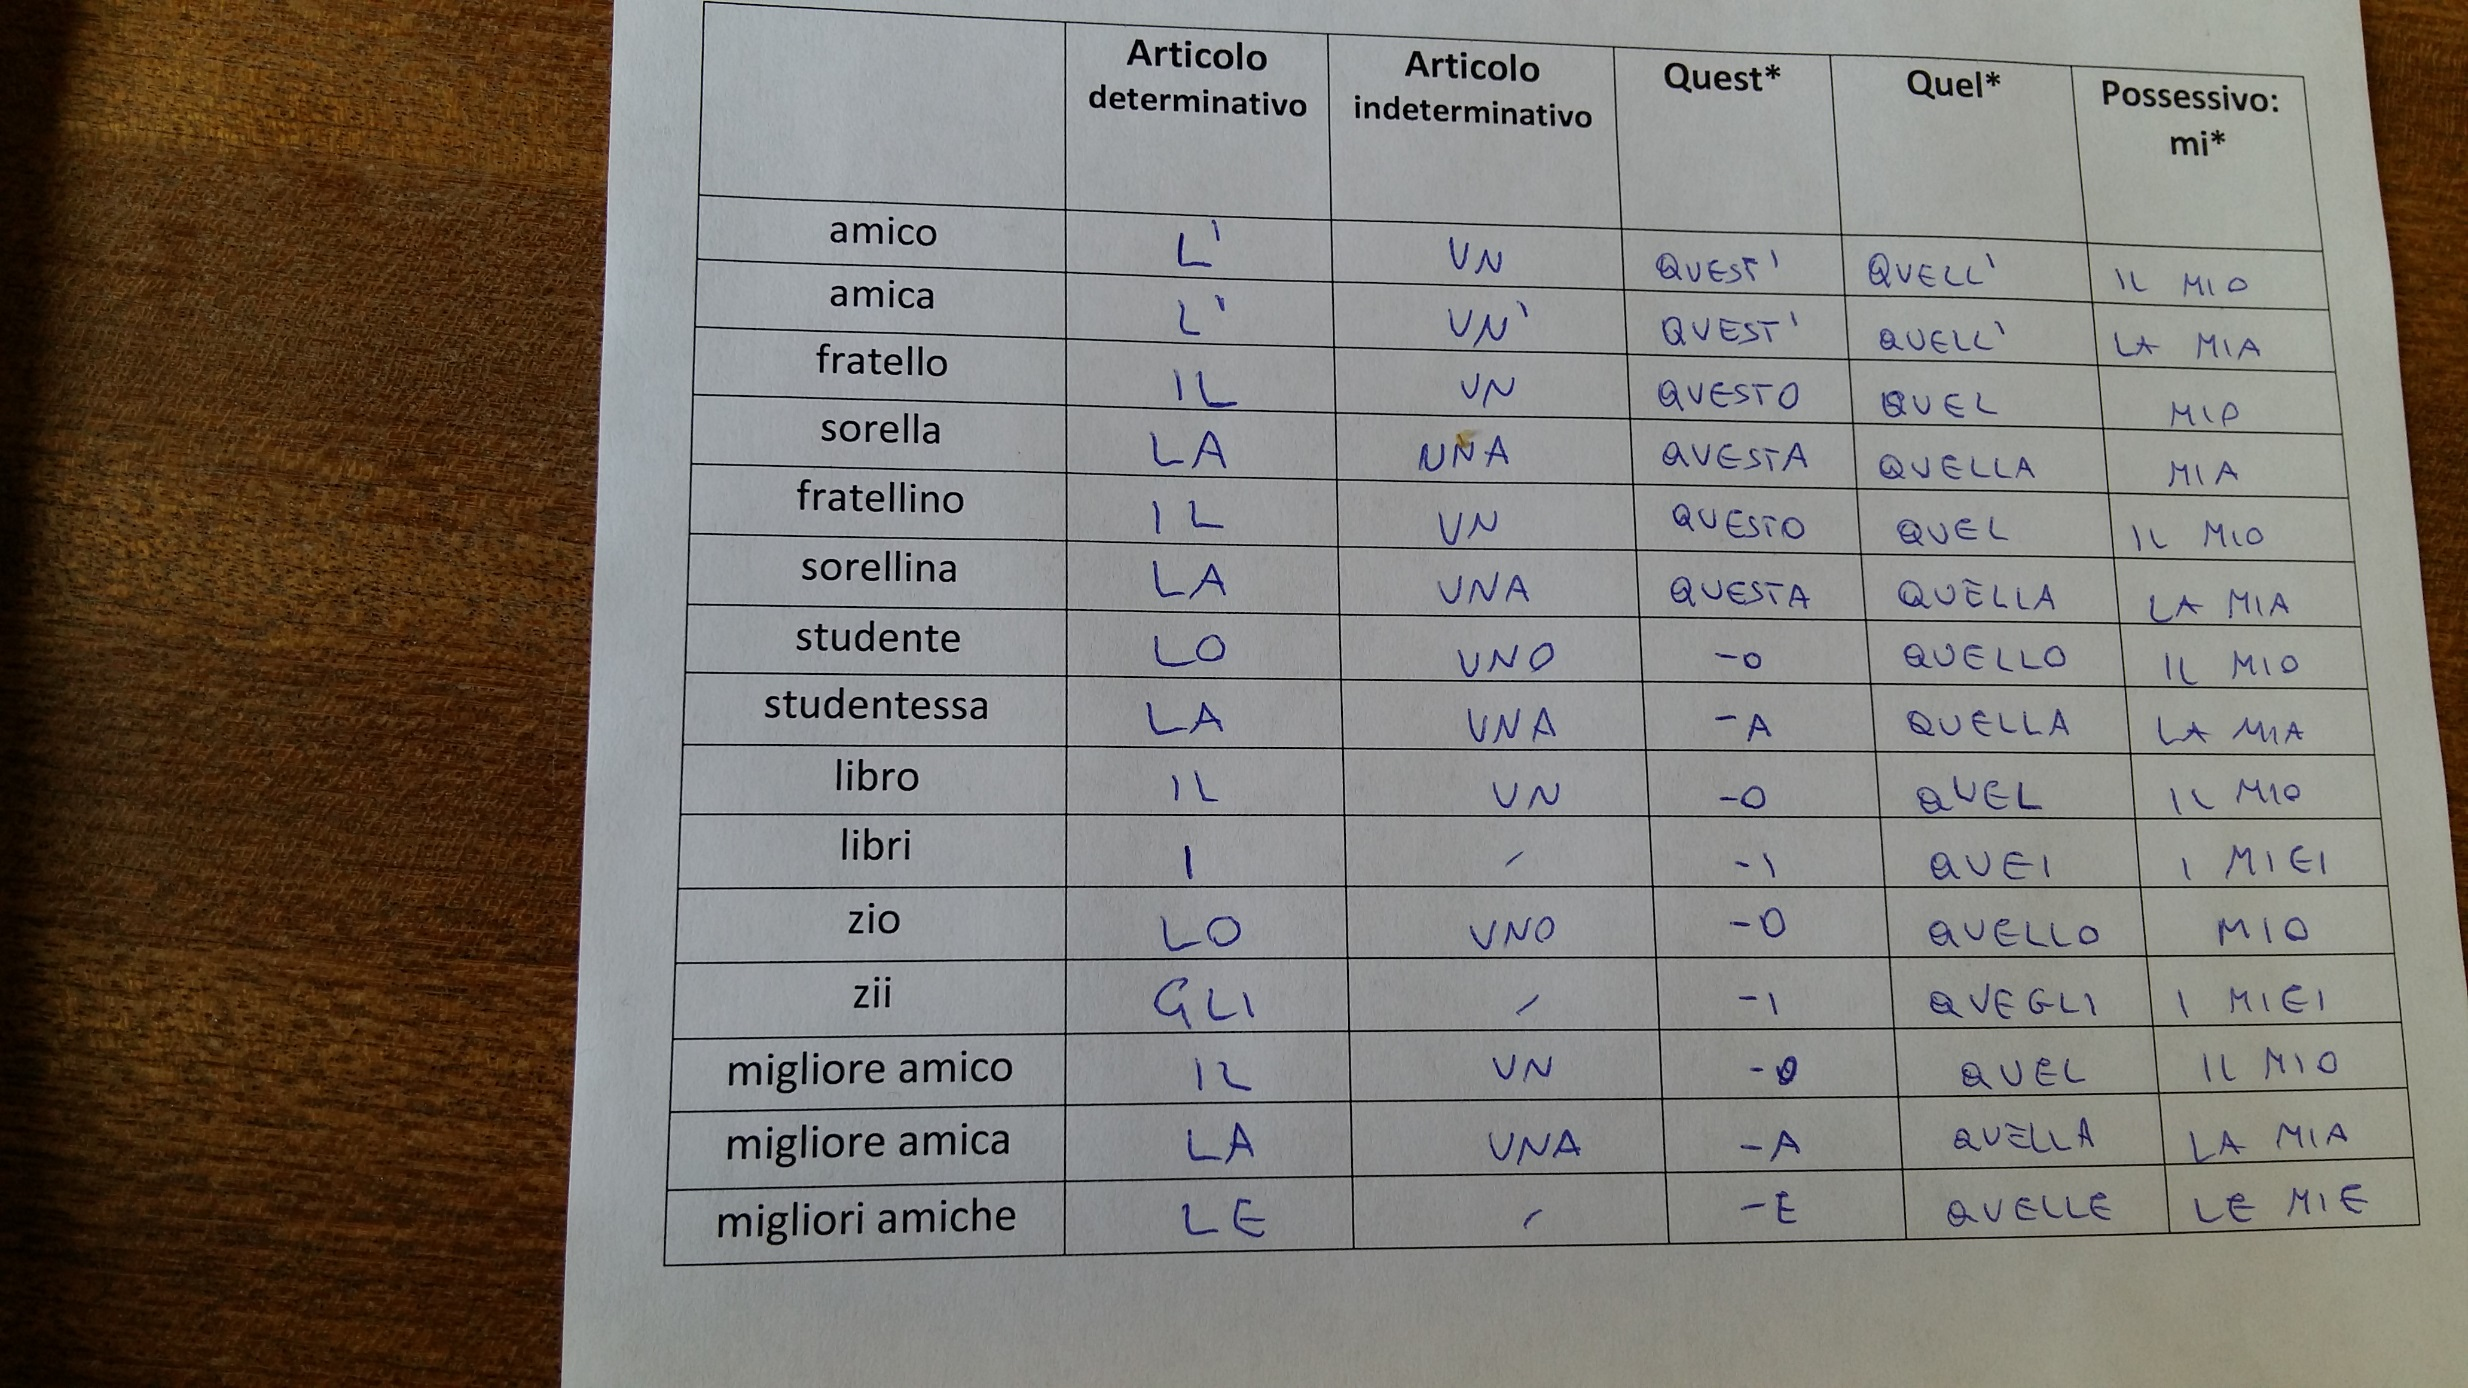 Articolo determinativo Articolo indeterminativo Quest* Quel* Possessivo: mi*
amico L' UN QUEST' QUELL' IL MIO
amica L' UN' QUEST' QUELL' LA MIA
fratello IL UN QUESTO QUEL MIO
sorella LA UNA QUESTA QUELLA MIA
fratellino IL UN QUESTO QUEL IL MIO
sorellina LA UNA QUESTA QUELLA LA MIA
studente LO UNO -O QUELLO IL MIO
studentessa LA UNA -A QUELLA LA MIA
libro IL UN -O QUEL IL MIO
libri I / -I QUEI I MIEI
zio LO UNO -O QUELLO MIO
zii GLI / -I QUEGLI I MIEI
migliore amico IL UN -O QUEL IL MIO
migliore amica LA UNA -A QUELLA LA MIA
migliori amiche LE / -E QUELLE LE MIE